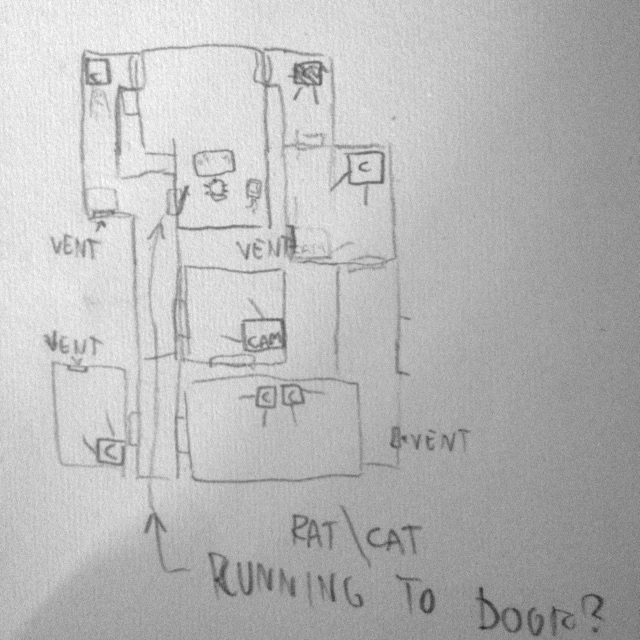 C
C
VENT
VENT
CAM
VENT
C
C C
VENT
RAT\CAT
RUNNING TO DOOR?